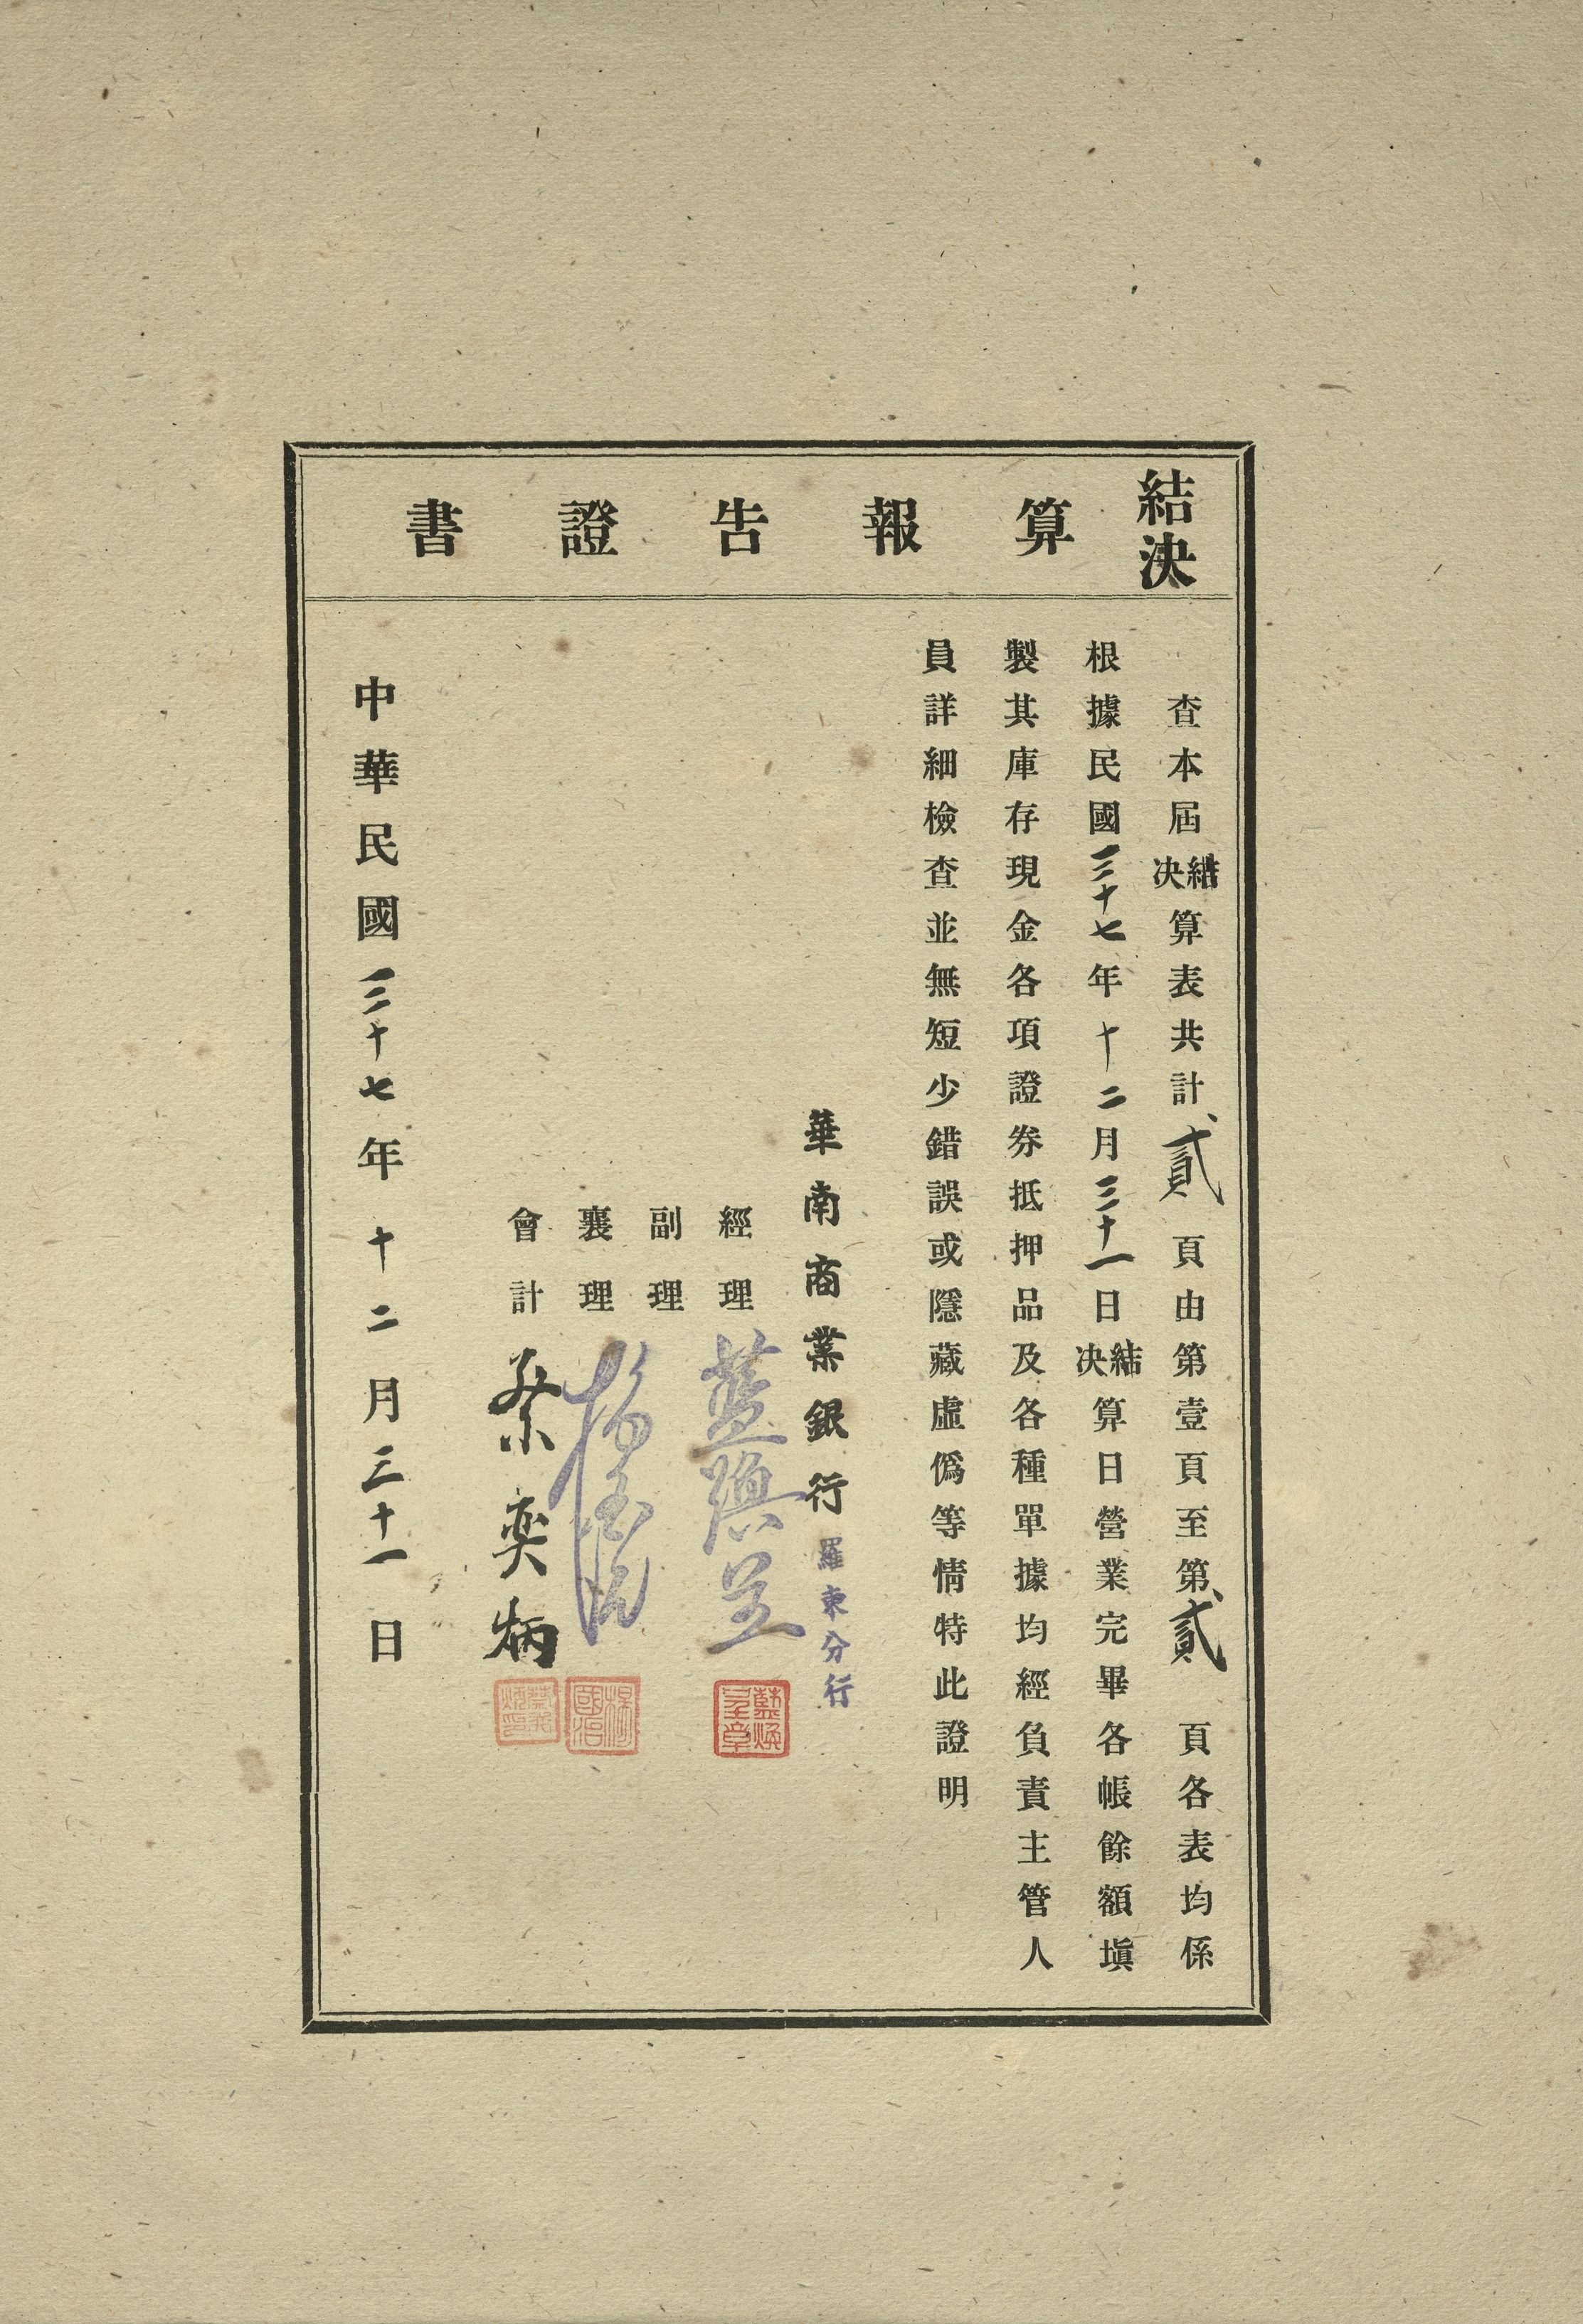 結決算報告證書
查本屆結決算表共計貳頁由第壹頁至第貳頁各表均係
根據民國三十七年十二月三十一日結決算日營業完畢各帳餘額塡
製其庫存現金各項證券抵押品及各種單據均經負責主管人
員詳細檢查並無短少錯誤或隱藏虛僞等情特此證明
華南商業銀行羅東分行
經理 藍煥呈
藍煥呈章
副理
襄理 楊國治
楊國治
會計 蔡奕炳
蔡奕炳印
中華民國三十七年十二月三十一日